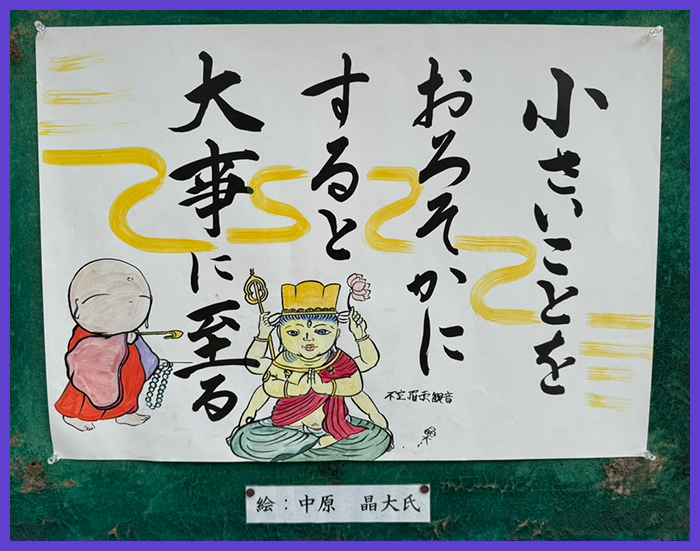 小さいことを
おろそかに
すると
大事に至る
不空羂索観音
絵：中原　晶大氏